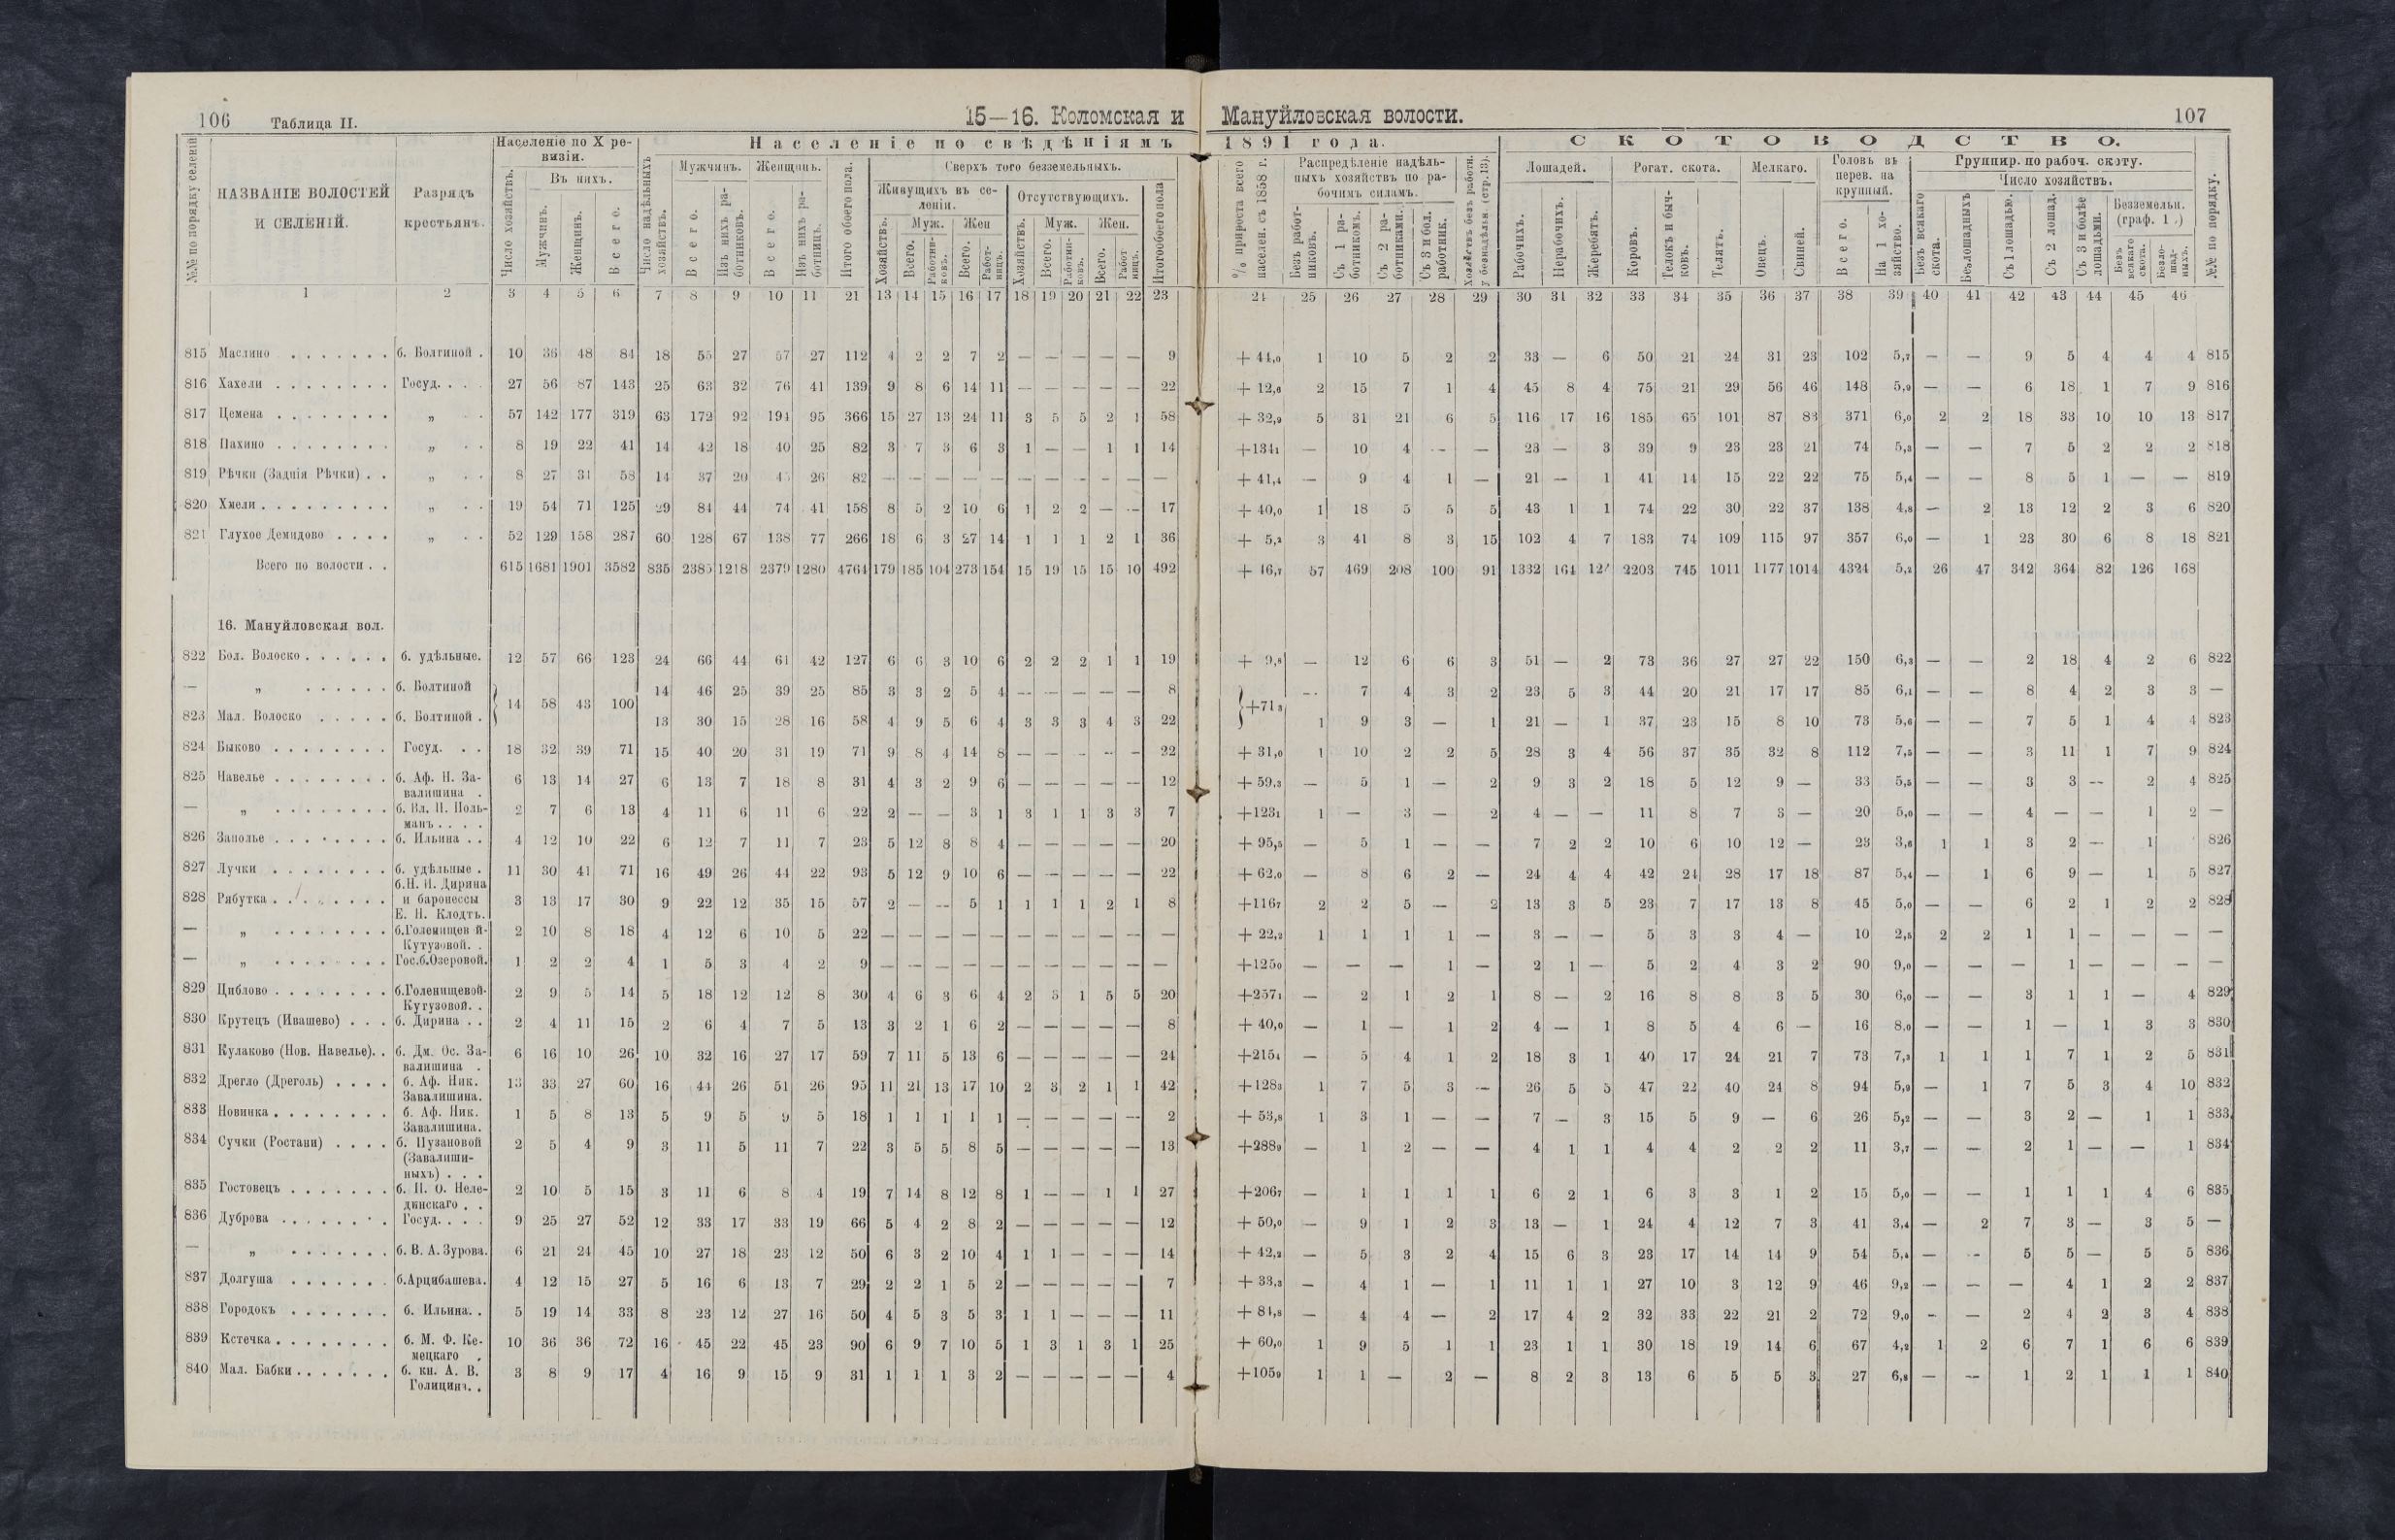 106 Таблица II. 15—16. Коломская и Мануйловская волости. 107
№№ по порядку селеній
НАЗВАНІЕ ВОЛОСТЕЙ И СЕЛЕНІЙ.
Разрядъ крестьянъ.
Населеніе по X ревизіи.
Число хозяйствъ.
Въ нихъ.
Мужчинъ.
Женщинъ.
Всего.
Населеніе по свѣдѣніямъ 1891 года.
Число надѣльныхъ хозяйствъ.
Мужчинъ. Женщинъ.
Всего.
Изъ нихъ работниковъ.
Всего.
Изъ нихъ работницъ.
Итого обоего пола.
Сверхъ того безземельныхъ.
Живущихъ въ селеніи. Отсутствующихъ.
Хозяйствъ. Муж. Жен
Итого обоего пола
% прироста всего населен. съ 1858 г.
Распредѣленіе надѣльныхъ хозяйствъ по рабочимъ силамъ.
Безъ работниковъ.
Съ 1 работникомъ.
Съ 2 работниками.
Съ 3 и бол. работник.
Хозяйствъ безъ работн. у безнадѣльн. (стр.13).
СКОТОВОДСТВО.
Лошадей. Рогат. скота. Мелкаго.
Рабочихъ. Нерабочихъ. Жеребятъ. Коровъ. Телокъ и бычковъ. Телятъ. Овецъ. Свиней.
Головъ въ перев. на крупный.
Всего. На 1 хозяйство.
Группир. по рабоч. скоту.
Число хозяйствъ.
Безъ всякаго скота. Безлошадныхъ Съ 1 лошадью. Съ 2 лошад. Съ 3 и болѣе лошадьми.
Безземельн. (граф. 1 .)
Безъ всякаго скота. Безлошадныхъ.
№№ по порядку.
1 2 3 4 5 6 7 8 9 10 11 21 13 14 15 16 17 18 19 20 21 22 23 24 25 26 27 28 29 30 31 32 33 34 35 36 37 38 39 40 41 42 43 44 45 46
815 Маслино б. Болтиной . 10 36 48 84 18 55 27 57 27 112 4 2 2 7 2 — — — — — 9 + 44,0 1 10 5 2 2 33 — 6 50 21 24 31 23 102 5,7 — — 9 5 4 4 4 815
816 Хахели Госуд. 27 56 87 143 25 63 32 76 41 139 9 8 6 14 11 — — — — — 22 + 12,6 2 15 7 1 4 45 8 4 75 21 29 56 46 148 5,9 — — 6 18 1 7 9 816
817 Цемена „ 57 142 177 319 63 172 92 194 95 366 15 27 13 24 11 3 5 5 2 1 58 + 32,9 5 31 21 6 5 116 17 16 185 65 101 87 83 371 6,0 2 2 18 33 10 10 13 817
818 Пахино „ 8 19 22 41 14 42 18 40 25 82 3 7 3 6 3 1 — — 1 1 14 +1341 — 10 4 — — 23 — 3 39 9 23 23 21 74 5,3 — — 7 5 2 2 2 818
819 Рѣчки (Заднія Рѣчки) „ 8 27 31 58 14 37 20 45 26 82 — — — — — — — — — — — + 41,4 — 9 4 1 — 21 — 1 41 14 15 22 22 75 5,4 — — 8 5 1 — — 819
820 Хмели „ 19 54 71 125 29 84 44 74 41 158 8 5 2 10 6 1 2 2 — — 17 + 40,0 1 18 5 5 5 43 1 1 74 22 30 22 37 138 4,8 — 2 13 12 2 3 6 820
821 Глухое Демидово „ 52 129 158 287 60 128 67 138 77 266 18 6 3 27 14 1 1 1 2 1 36 + 5,2 3 41 8 3 15 102 4 7 183 74 109 115 97 357 6,0 — 1 23 30 6 8 18 821
Всего по волости . . 615 1681 1901 3582 835 2385 1218 2379 1280 4764 179 185 104 273 154 15 19 15 15 10 492 + 46,7 57 469 208 100 91 1332 164 2203 745 1011 1177 1014 4324 5,2 26 47 342 364 82 126 168
16. Мануйловская вол.
822 Бол. Волоско б. удѣльные. 12 57 66 123 24 66 44 61 42 127 6 6 3 10 6 2 2 2 1 1 19 + 9,8 — 12 6 6 3 51 — 2 73 36 27 27 22 150 6,3 — — 2 18 4 2 6 822
— „ б. Болтиной 14 58 43 100 14 46 25 39 25 85 3 3 2 5 4 — — — — — 8 +71 3 — 7 4 3 2 23 5 3 44 20 21 17 17 85 6,1 — — 8 4 2 3 3 —
823 Мал. Волоско б. Болтиной . 13 30 15 28 16 58 4 9 5 6 4 3 3 3 4 3 22 1 9 3 — 1 21 — 1 37 23 15 8 10 73 5,6 — — 7 5 1 4 4 823
824 Быково Госуд. 18 32 39 71 15 40 20 31 19 71 9 8 4 14 8 — — — — — 22 + 31,0 1 10 2 2 5 28 3 4 56 37 35 32 8 112 7,5 — — 3 11 1 7 9 824
825 Навелье б. Аф. Н. Завалишина . 6 13 14 27 6 13 7 18 8 31 4 3 2 9 6 — — — — — 12 + 59,3 — 5 1 — 2 9 3 2 18 5 12 9 — 33 5,5 — — 3 3 — 2 4 825
— „ б. Вл. П. Польманъ 2 7 6 13 4 11 6 11 6 22 2 — — 3 1 3 1 1 3 3 7 +1231 1 — 3 — 2 4 — — 11 8 7 3 — 20 5,0 — — 4 — — 1 2 —
826 Заполье б. Ильина . . 4 12 10 22 6 12 7 11 7 23 5 12 8 8 4 — — — — — 20 + 95,5 — 5 1 — — 7 2 2 10 6 10 12 — 23 3,8 1 1 3 2 — 1 826
827 Лучки б. удѣльные . 11 30 41 71 16 49 26 44 22 93 5 12 9 10 6 — — — — — 22 + 62,0 — 8 6 2 — 24 4 4 42 24 28 17 18 87 5,4 — 1 6 9 — 1 5 827
828 Рябутка б.Н. И. Дирина и баронессы Е. Н. Клодтъ. 3 13 17 30 9 22 12 35 15 57 2 — — 5 1 1 1 1 2 1 8 +1167 2 2 5 — 2 13 3 5 23 7 17 13 8 45 5,0 — — 6 2 1 2 2 828
— „ б.Голенищевой-Кутузовой. . 2 10 8 18 4 12 6 10 5 22 — — — — — — — — — — — + 22,2 1 1 1 1 — 3 — — 5 3 3 4 — 10 2,5 2 2 1 1 — — — —
— „ Гос.б.Озеровой. 1 2 2 4 1 5 3 4 2 9 — — — — — — — — — — — +1250 — — — 1 — 2 1 — 5 2 4 3 2 90 9,0 — — — 1 — — — —
829 Циблово б.Голенищевой-Кутузовой. . 2 9 5 14 5 18 12 12 8 30 4 6 3 6 4 2 3 1 5 5 20 +2571 — 2 1 2 1 8 — 2 16 8 8 3 5 30 6,0 — — 3 1 1 — 4 829
830 Крутецъ (Ивашево) б. Дирина . . 2 4 11 15 2 6 4 7 5 13 3 2 1 6 2 — — — — — 8 + 40,0 — 1 — 1 2 4 — 1 8 5 4 6 — 16 8,0 — — 1 — 1 3 3 830
831 Кулаково (Нов. Навелье). . б. Дм. Ос. Завалишина . 6 16 10 26 10 32 16 27 17 59 7 11 5 13 6 — — — — — 24 +2154 — 5 4 1 2 18 3 1 40 17 24 21 7 73 7,3 1 1 1 7 1 2 5 831
832 Дрегло (Дреголь) б. Аф. Ник. Завалишина. 13 33 27 60 16 44 26 51 26 95 11 21 13 17 10 2 3 2 1 1 42 +1283 1 7 5 3 — 26 5 5 47 22 40 24 8 94 5,9 — 1 7 5 3 4 10 832
833 Новинка б. Аф. Ник. Завалишина. 1 5 8 13 5 9 5 9 5 18 1 1 1 1 1 — — — — — 2 + 53,8 1 3 1 — — 7 — 3 15 5 9 — 6 26 5,2 — — 3 2 — 1 1 833
834 Сучки (Ростани) б. Пузановой (Завалишиныхъ) 2 5 4 9 3 11 5 11 7 22 3 5 5 8 5 — — — — — 13 +2889 — 1 2 — — 4 1 1 4 4 2 2 2 11 3,7 — — 2 1 — — 1 834
835 Гостовецъ б. П. О. Неледниского . . 2 10 5 15 3 11 6 8 4 19 7 14 8 12 8 1 — — 1 1 27 +2067 — 1 1 1 1 6 2 1 6 3 3 1 2 15 5,0 — — 1 1 1 4 6 835
836 Дуброва Госуд. 9 25 27 52 12 33 17 33 19 66 5 4 2 8 2 — — — — — 12 + 50,0 — 9 1 2 3 13 — 1 24 4 12 7 3 41 3,4 — 2 7 3 — 3 5 —
— „ б. В. А. Зурова. 6 21 24 45 10 27 18 23 12 50 6 3 2 10 4 1 1 — — — 14 + 42,2 — 5 3 2 4 15 6 3 23 17 14 14 9 54 5,4 — - 5 5 — 5 5 836
837 Долгуша б.Арцибашева. 4 12 15 27 5 16 6 13 7 29 2 2 1 5 2 — — — — — 7 + 33,3 — 4 1 — 1 11 1 1 27 10 3 12 9 46 9,2 — — — 4 1 2 2 837
838 Городокъ б. Ильина. . 5 19 14 33 8 23 12 27 16 50 4 5 3 5 3 1 1 — — — 11 + 81,8 — 4 4 — 2 17 4 2 32 33 22 21 2 72 9,0 — — 2 4 2 3 4 838
839 Кстечка б. М. Ф. Кемецкаго . 10 36 36 72 16 45 22 45 23 90 6 9 7 10 5 1 3 1 3 1 25 + 60,0 1 9 5 1 1 23 1 1 30 18 19 14 6 67 4,2 1 2 6 7 1 6 6 839
840 Мал. Бабки б. кн. А. В. Голицина. . 3 8 9 17 4 16 9 15 9 31 1 1 1 3 2 — — — — — 4 +1059 1 1 — 2 — 8 2 3 13 6 5 5 3 27 6,8 — — 1 2 1 1 1 840